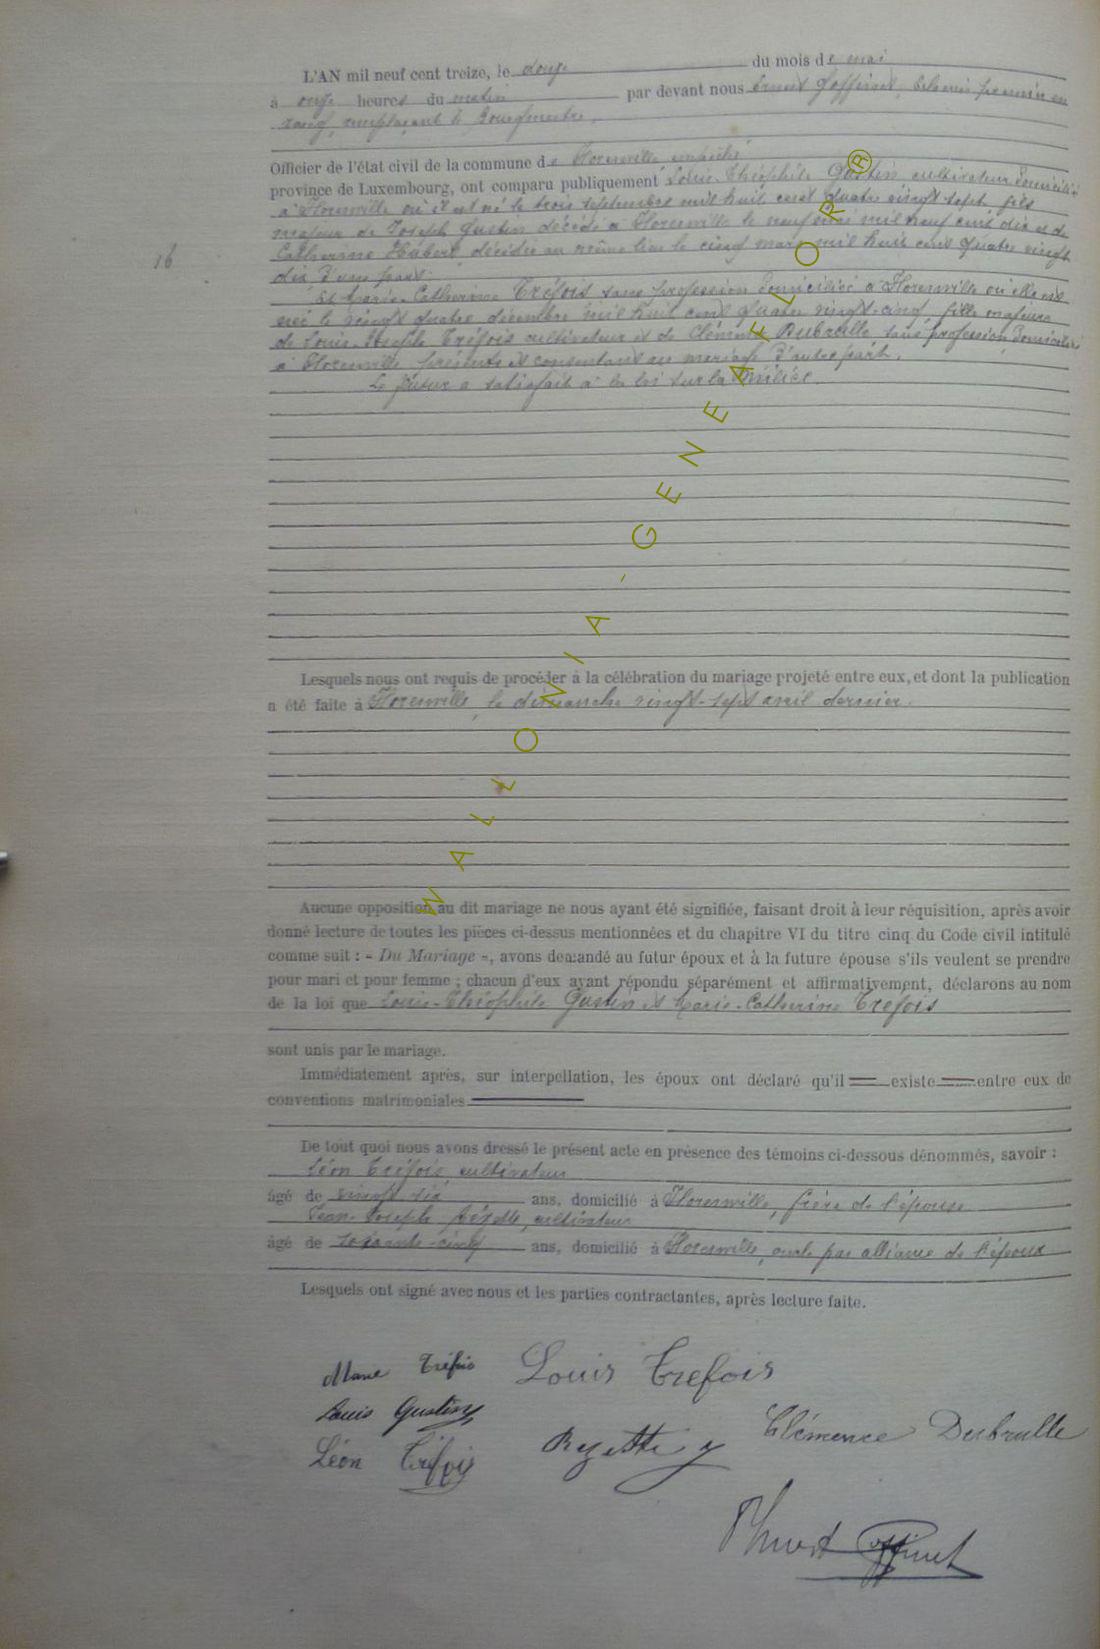 L'AN mil neuf cent treize, le douze du mois de mai
à onze heures du matin par devant nous Ernest Goffinet, Echevin premier en
rang, remplaçant le Bourgmestre,
Officier de l'état civil de la commune de Florenville empêché
province de Luxembourg, ont comparu publiquement Louis-Théophile Gustin cultivateur domicilié
à Florenville où il est né le trois septembre mil huit cent quatre vingt sept fils
majeur de Joseph Gustin décédé à Florenville le neuf mil neuf cent dix et de
Catherine Hubert, décédée au même lieu le cinq mars mil huit cent quatre vingt
dix d'une part.
16
Et Marie-Catherine Tréfois sans profession domiciliée à Florenville où elle est
née le vingt quatre décembre mil huit cent quatre vingt-cinq, fille majeure
de Louis-Joseph Tréfois cultivateur et de Clémence Dubrulle sans profession domiciliés
à Florenville présents et consentant au mariage d'autre part.
Le futur a satisfait à la loi sur la milice.
Lesquels nous ont requis de procéder à la célébration du mariage projeté entre eux, et dont la publication
a été faite à Florenville, le dimanche vingt-sept avril dernier.
Aucune opposition au dit mariage ne nous ayant été signifiée, faisant droit à leur réquisition, après avoir
donné lecture de toutes les pièces ci-dessus mentionnées et du chapitre VI du titre cinq du Code civil intitulé
comme suit : « Du Mariage », avons demandé au futur époux et à la future épouse s'ils veulent se prendre
pour mari et pour femme ; chacun d'eux ayant répondu séparément et affirmativement, déclarons au nom
de la loi que Louis-Théophile Gustin et Marie-Catherine Trefois
sont unis par le mariage.
Immédiatement après, sur interpellation, les époux ont déclaré qu'il existe entre eux de
conventions matrimoniales
De tout quoi nous avons dressé le présent acte en présence des témoins ci-dessous dénommés, savoir :
Léon Tréfois, cultivateur
âgé de vingt six ans, domicilié à Florenville, frère de l'épouse
Jean-Joseph Rézette, cultivateur
âgé de soixante-cinq ans, domicilié à Florenville, oncle par alliance de l'époux
Lesquels ont signé avec nous et les parties contractantes, après lecture faite.
Marie Tréfois Louis Trefois
Louis Gustin
Clémence Dubrulle
Léon Tréfois Rezette J
Ernest Goffinet
WALLONIA-GENEAFLOR®